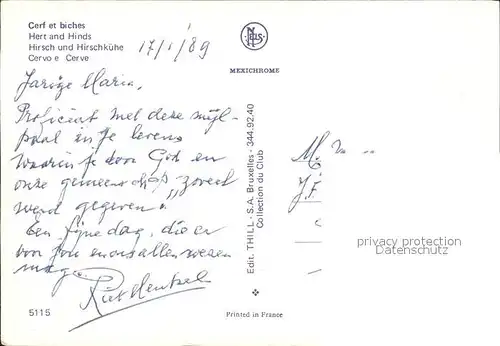 Cerf et biches
Hert and Hinds
Hirsch und Hirschkühe
Cervo e Cerve
17/1/89
NELS
MEXICHROME
Jarige Maria,
Proficiat met deze mijl-
paal in je leven,
waarin je door God en
onze gemeenschap zoveel
werd gegeven!
Een fijne dag, die er
voor jou en ons allen wezen
mag.
Riet Hentzel
Edit. THILL - S.A. Bruxelles - 344.92.40
Collection du Club
M.
J.F.
privacy protection
Datenschutz
5115
Printed in France